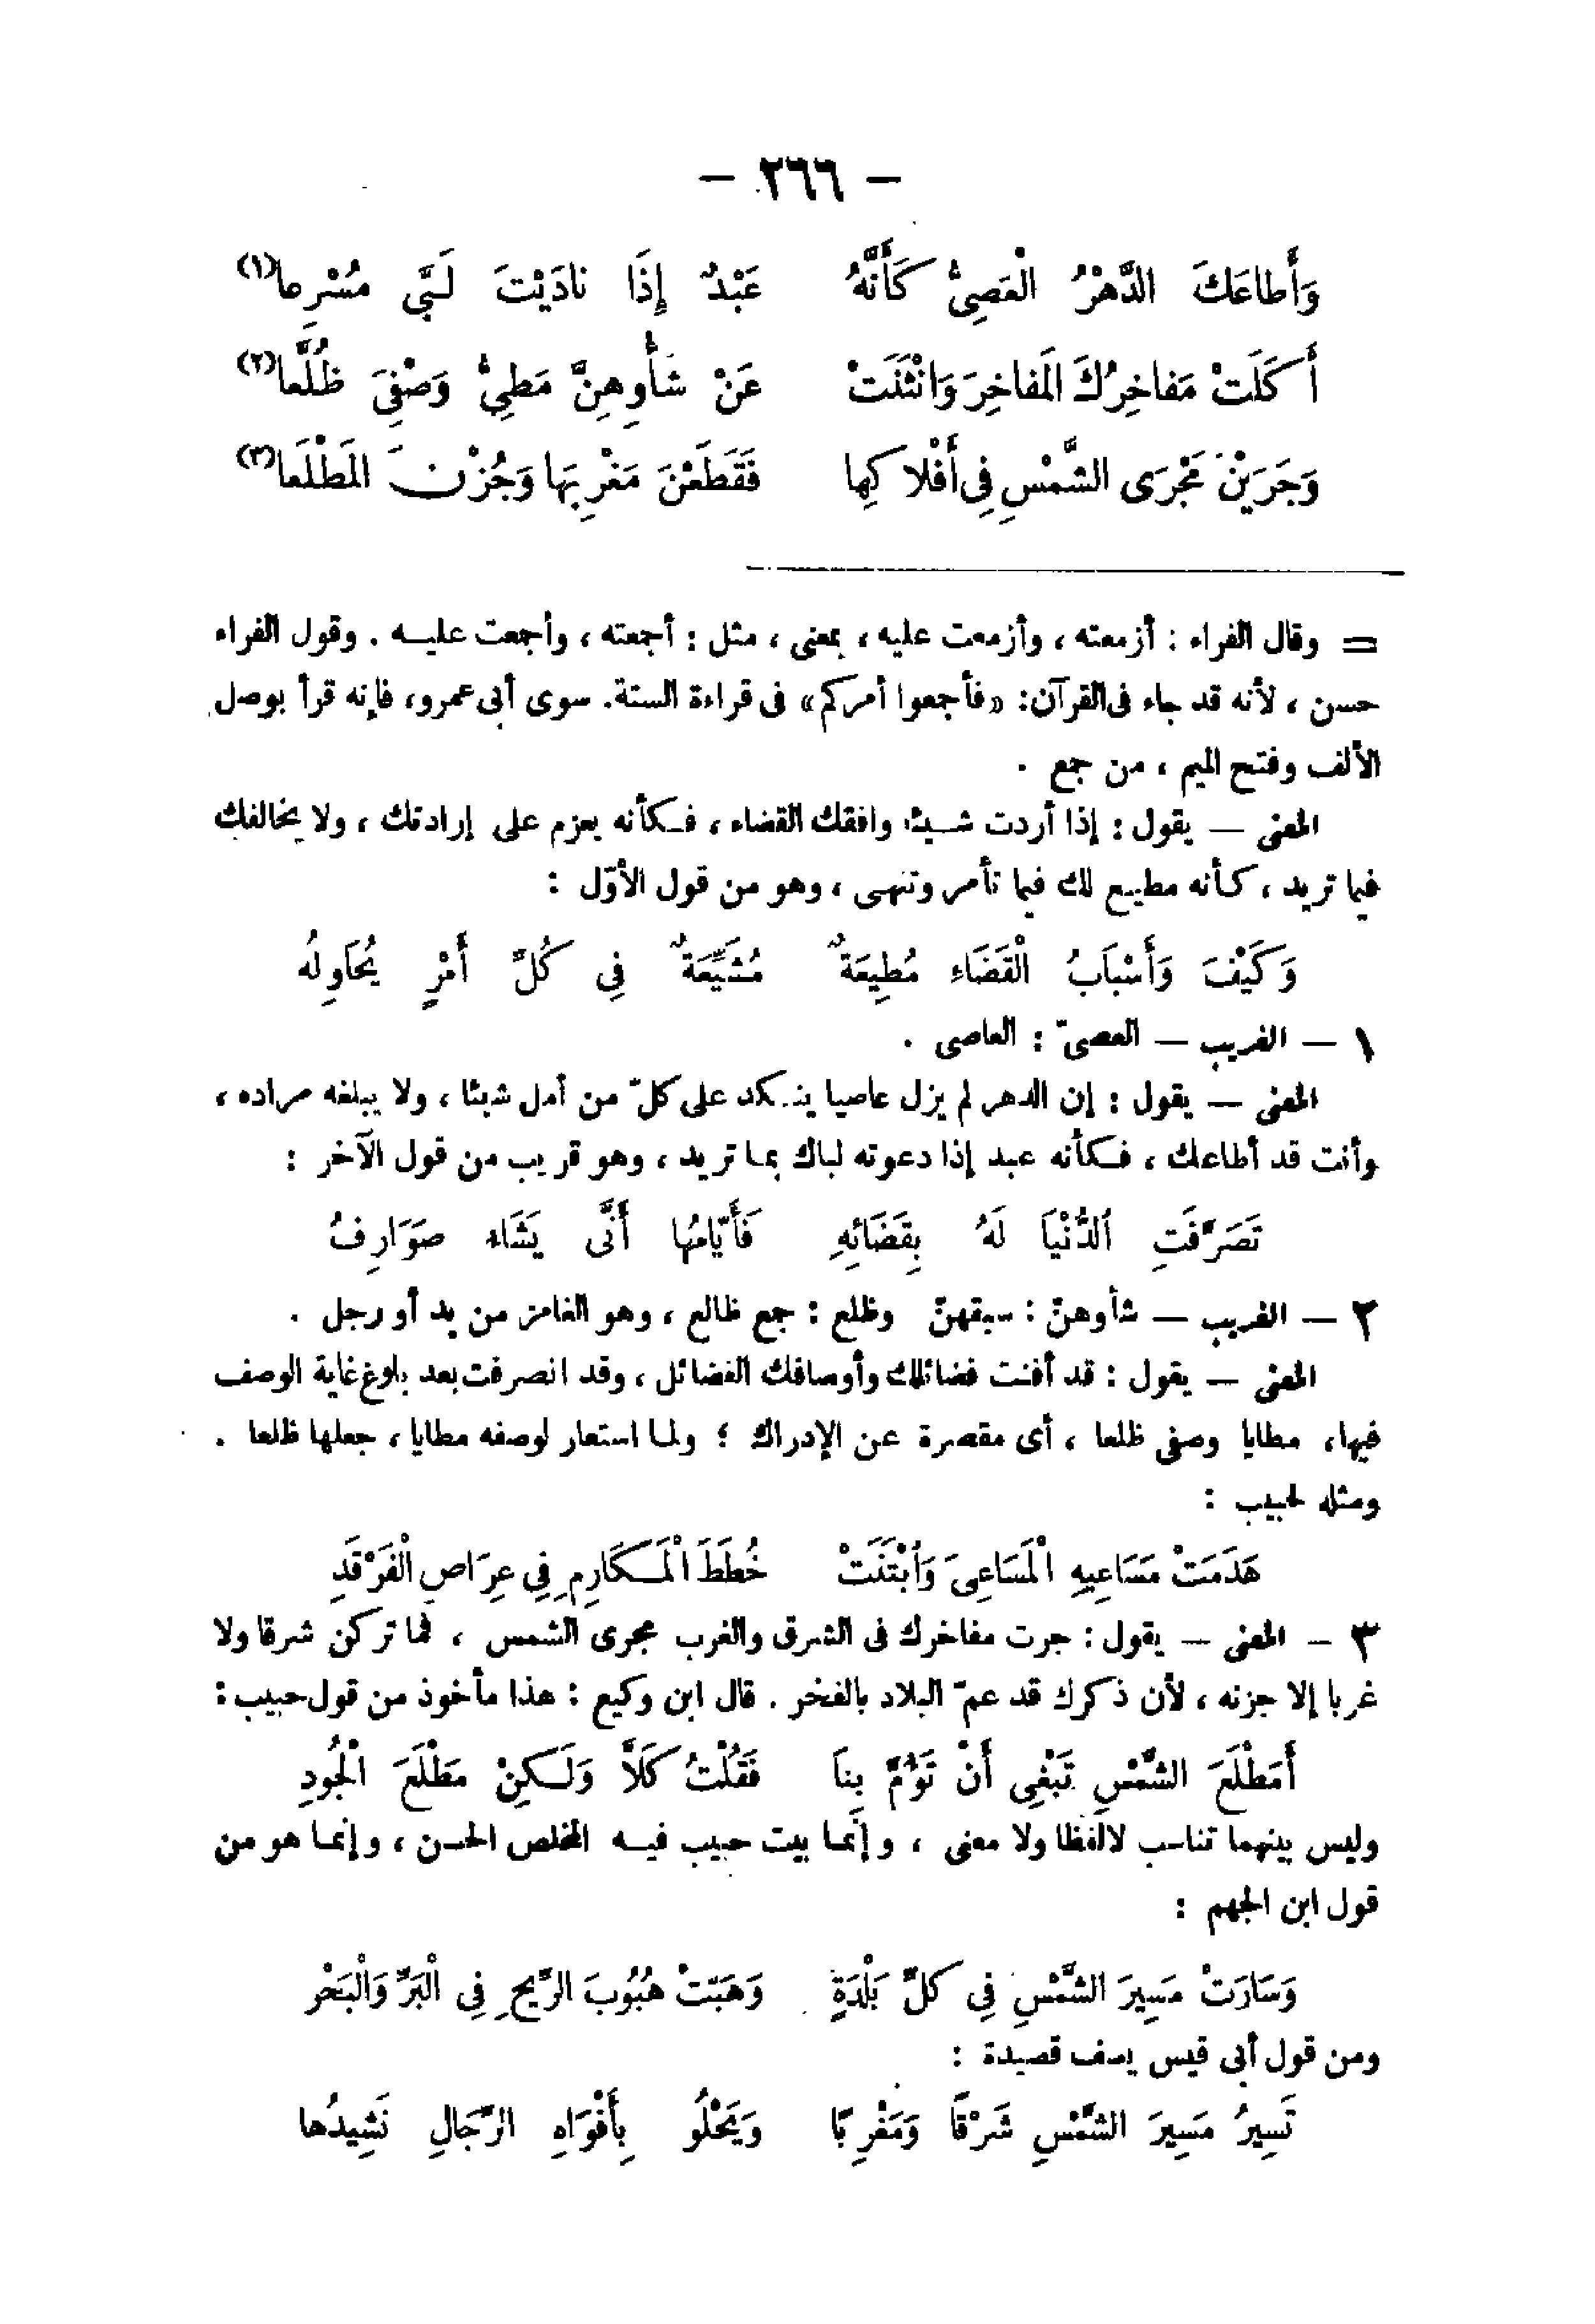 — ٢٦٦ —
وَأَطاعَكَ الدَّهْرُ الْعَصِىُّ كَأَنَّهُ عَبْدٌ إِذَا نادَيْتَ لَبَّى مُسْرِعا(١)
أَكَلَتْ مَفاخِرُكَ الَمفاخِرَ وَانْثَنَتْ عَنْ شَأْوِهِنَّ مَطِىُّ وَصْفِىَ ظُلَّعا(٢)
وَجَرَيْنَ مَجْرَى الشَّمْسِ فِى أَفْلاكِها فَقَطَعْنَ مَغْرِبَهَا وَجُزْنَ المَطْلَعا(٣)
= وقال الفراء : أزمعته ، وأزمعت عليه ، بمعنى ، مثل : أجمعته ، وأجمعت عليه . وقول الفراء
حسن ، لأنه قد جاء فى القرآن: «فأجمعوا أمركم» فى قراءة الستة. سوى أبى عمرو، فإنه قرأ بوصل
الألف وفتح الميم ، من جمع .
المعنى — يقول : إذا أردت شيئا وافقك القضاء ، فكأنه يعزم على إرادتك ، ولا يخالفك
فيما تريد ، كأنه مطيع لك فيما تأمر وتنهى ، وهو من قول الأوّل :
وَكَيْفَ وَأَسْبَابُ الْقَضَاءِ مُطِيعَةٌ مُشَيِّعَةٌ فِى كُلِّ أَمْرٍ يُحَاوِلُه
١ — الغريب — العصىّ : العاصى .
المعنى — يقول : إن الدهر لم يزل عاصيا ينكد على كلّ من أمل شيئا ، ولا يبلغه مراده ،
وأنت قد أطاعك ، فكأنه عبد إذا دعوته لباك بما تريد ، وهو قريب من قول الآخر :
تَصَرَّفَتِ الدُّنْيَا لَهُ بِقَضَائِهِ فَأَيَّامُهَا أَنَّى يَشَاء صَوَارِفُ
٢ — الغريب — شأوهنّ : سبقهنّ وظلع : جمع ظالع ، وهو الغامز من يد أو رجل .
المعنى — يقول : قد أفنت فضائلك وأوصافك الفضائل ، وقد انصرفت بعد بلوغ غاية الوصف
فيها، مطايا وصفى ظلعا ، أى مقصرة عن الإدراك ؛ ولما استعار لوصفه مطايا ، جعلها ظلعا .
ومثله لحبيب :
هَدَمَتْ مَسَاعِيهِ الْمَسَاعِىَ وَابْتَنَتْ خُطَطَ الْمَكَارِمِ فِى عِرَاصِ الْفَرْقَدِ
٣ – المعنى — يقول : جرت مفاخرك فى الشرق والغرب مجرى الشمس ، فما تركن شرقا ولا
غربا إلا جزنه ، لأن ذكرك قد عمّ البلاد بالفخر . قال ابن وكيع : هذا مأخوذ من قول حبيب :
أَمَطْلَعَ الشَّمْسِ تَبْغِى أَنْ تَؤُمَّ بِنَا فَقُلْتُ كَلاَّ وَلَكِنْ مَطْلَعَ الْجُودِ
وليس بينهما تناسب لا لفظا ولا معنى ، وإنما بيت حبيب فيه المخلص الحسن ، وإنما هو من
قول ابن الجهم :
وَسَارَتْ مَسِيرَ الشَّمْسِ فِى كلِّ بَلْدَةٍ وَهَبَتْ هُبُوبَ الرِّيحِ فِى الْبَرِّ وَالْبَحْرِ
ومن قول أبى قيس يصف قصيدة :
تَسِيرُ مَسِيرَ الشَّمْسِ شَرْقًا وَمَغْرِبًا وَيَحْلُو بِأَفْوَاهِ الرِّجَالِ نَشِيدُها